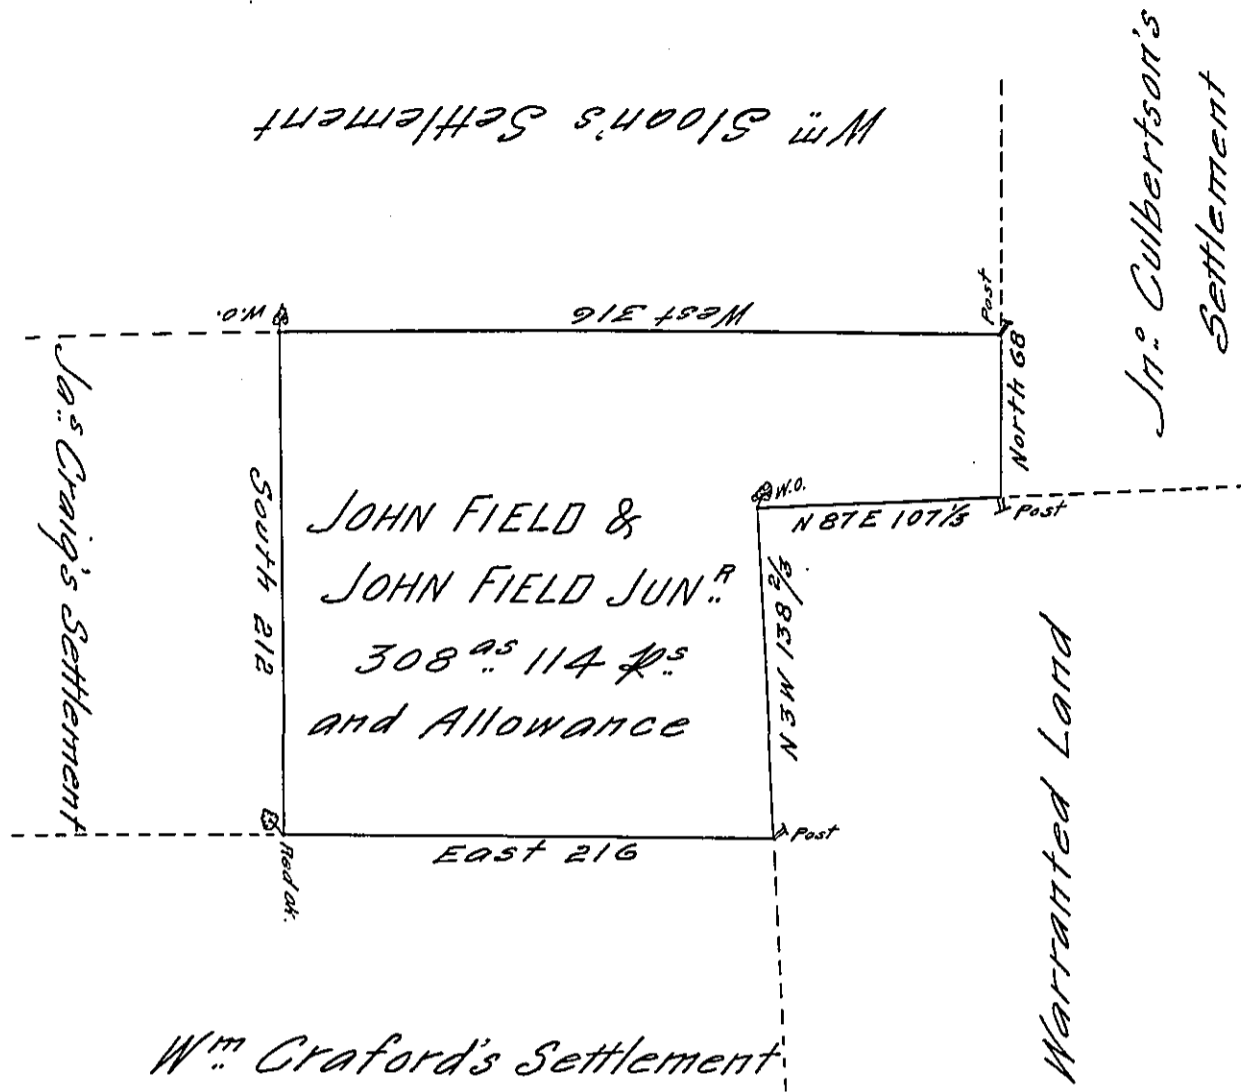 Wm Sloan's Settlement
Jno Culbertson's
Settlement
W.O.
West 316
Post
North 68
Jas Craig's Settlement
South 212
JOHN FIELD &
JOHN FIELD JUNR
308 as 114 ps
and Allowance
W.O.
N 87 E 107 1/3
Post
N 3 W 138 2/3
Warranted Land
Red ok.
East 216
Post
Wm Craford's Settlement